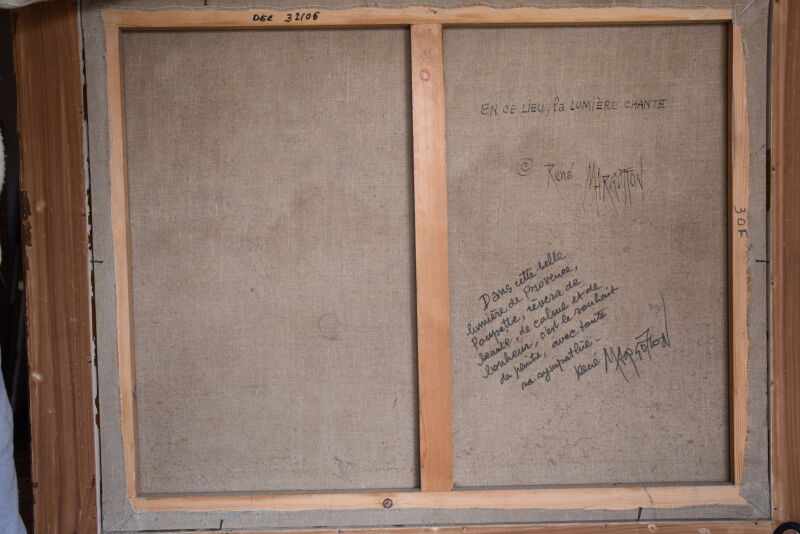 DEC 32106
EN CE LIEU, la LUMIÈRE CHANTE
© René MARGOTTON
30F
Dans cette belle
lumière de Provence,
Poupette, rêvera de
beauté, de calme et de
bonheur, c'est le souhait
du peintre, avec toute
sa sympathie -
René MARGOTTON